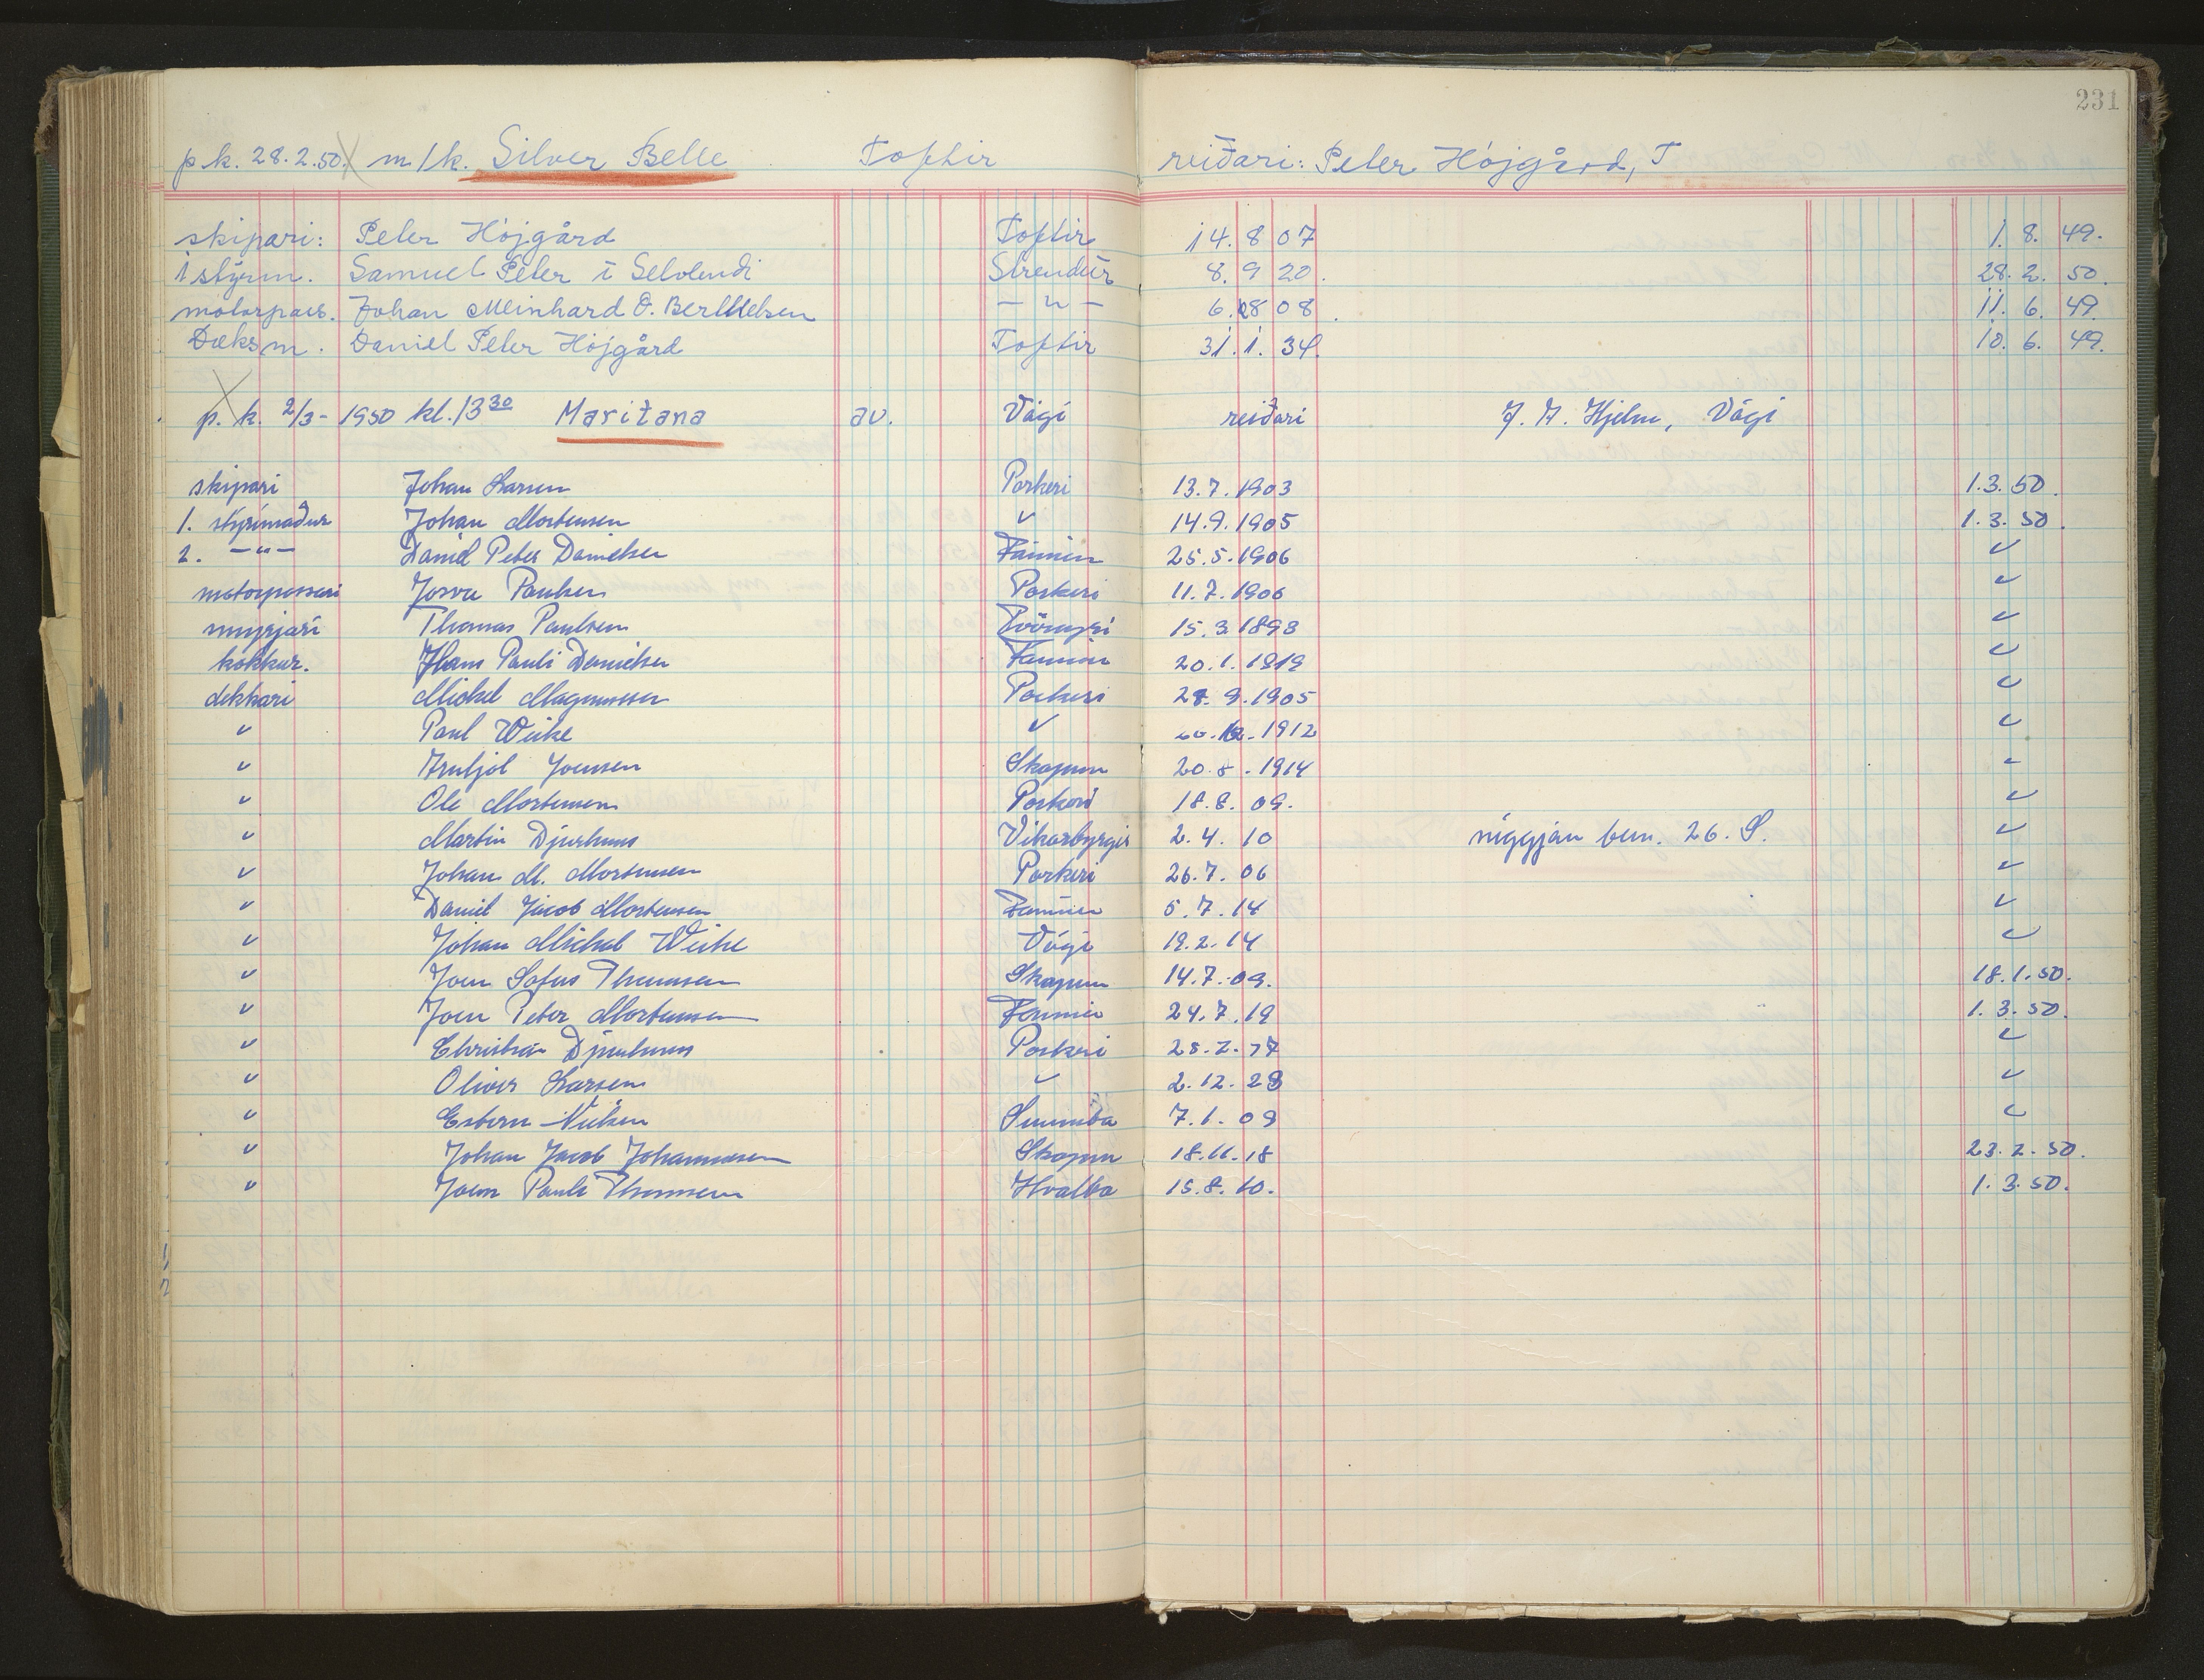 231
p.k. 28.2.50. m/k. Silver Belle Toftir reiðari: Peter Højgård, T
skipari: Peter Højgård Toftir 14. 8 07 1. 8. 49.
1 stýrm. Samuel Peter í Selvindi Strendur 8. 9 20. 28. 2. 50.
motorpass. Johan Meinhard O. Berthelsen — " — 6. 8 08. 11. 6. 49.
Dæksm. Daniel Peter Højgård Toftir 31. 1. 34. 10. 6. 49.
p. k. 2/3 - 1950 kl. 13 30 Maritana av. Vági reiðari J. A. Hjelm, Vági
skipari Johan Larsen Porkeri 13.7.1903 1.3.50.
1. stýrimaður Johan Mortensen " 14.9.1905 1.3.50.
2. — " — Daniel Peter Danielsen Fámjin 25.5.1906 "
motorpassari Josva Poulsen Porkeri 11.7.1906 "
smyrjari Thomas Poulsen 15.3.1898 "
kokkur. Hans Pauli Danielsen Famjin 20.1.1919 "
dekkari Mickel Magnussen Porkeri 28.9.1905 "
" Paul Weihe " 1912 "
" Joensen Skopun 20.8.1914 "
" Ole Mortensen Porkeri 18.8.09. "
" Martin Djurhuus Vikarbyrgi 2.4.10 niggjan bem. 26. S. "
" Johan M. Mortensen Porkeri 26.7.06 "
" Daniel Jacob Mortensen Famjin 5.7.14 "
" Johan Michal Weihe Vági 19.2.14 "
" Joen Sofus Thomsen Skopun 14.7.09. 18.1.50.
" Joen Peter Mortensen Famjin 24.7.19 1.3.50.
" Christian Djurhuus Porkeri "
" Oliver Larsen " 2.12.28 "
" Esbern Nielsen Sumba 7.1.09 "
" Johan Jacob Johannesen Skopun 18.11.18 23.2.50.
" Joen Pauli Thomsen Hvalba 15.8.10. 1.3.50.